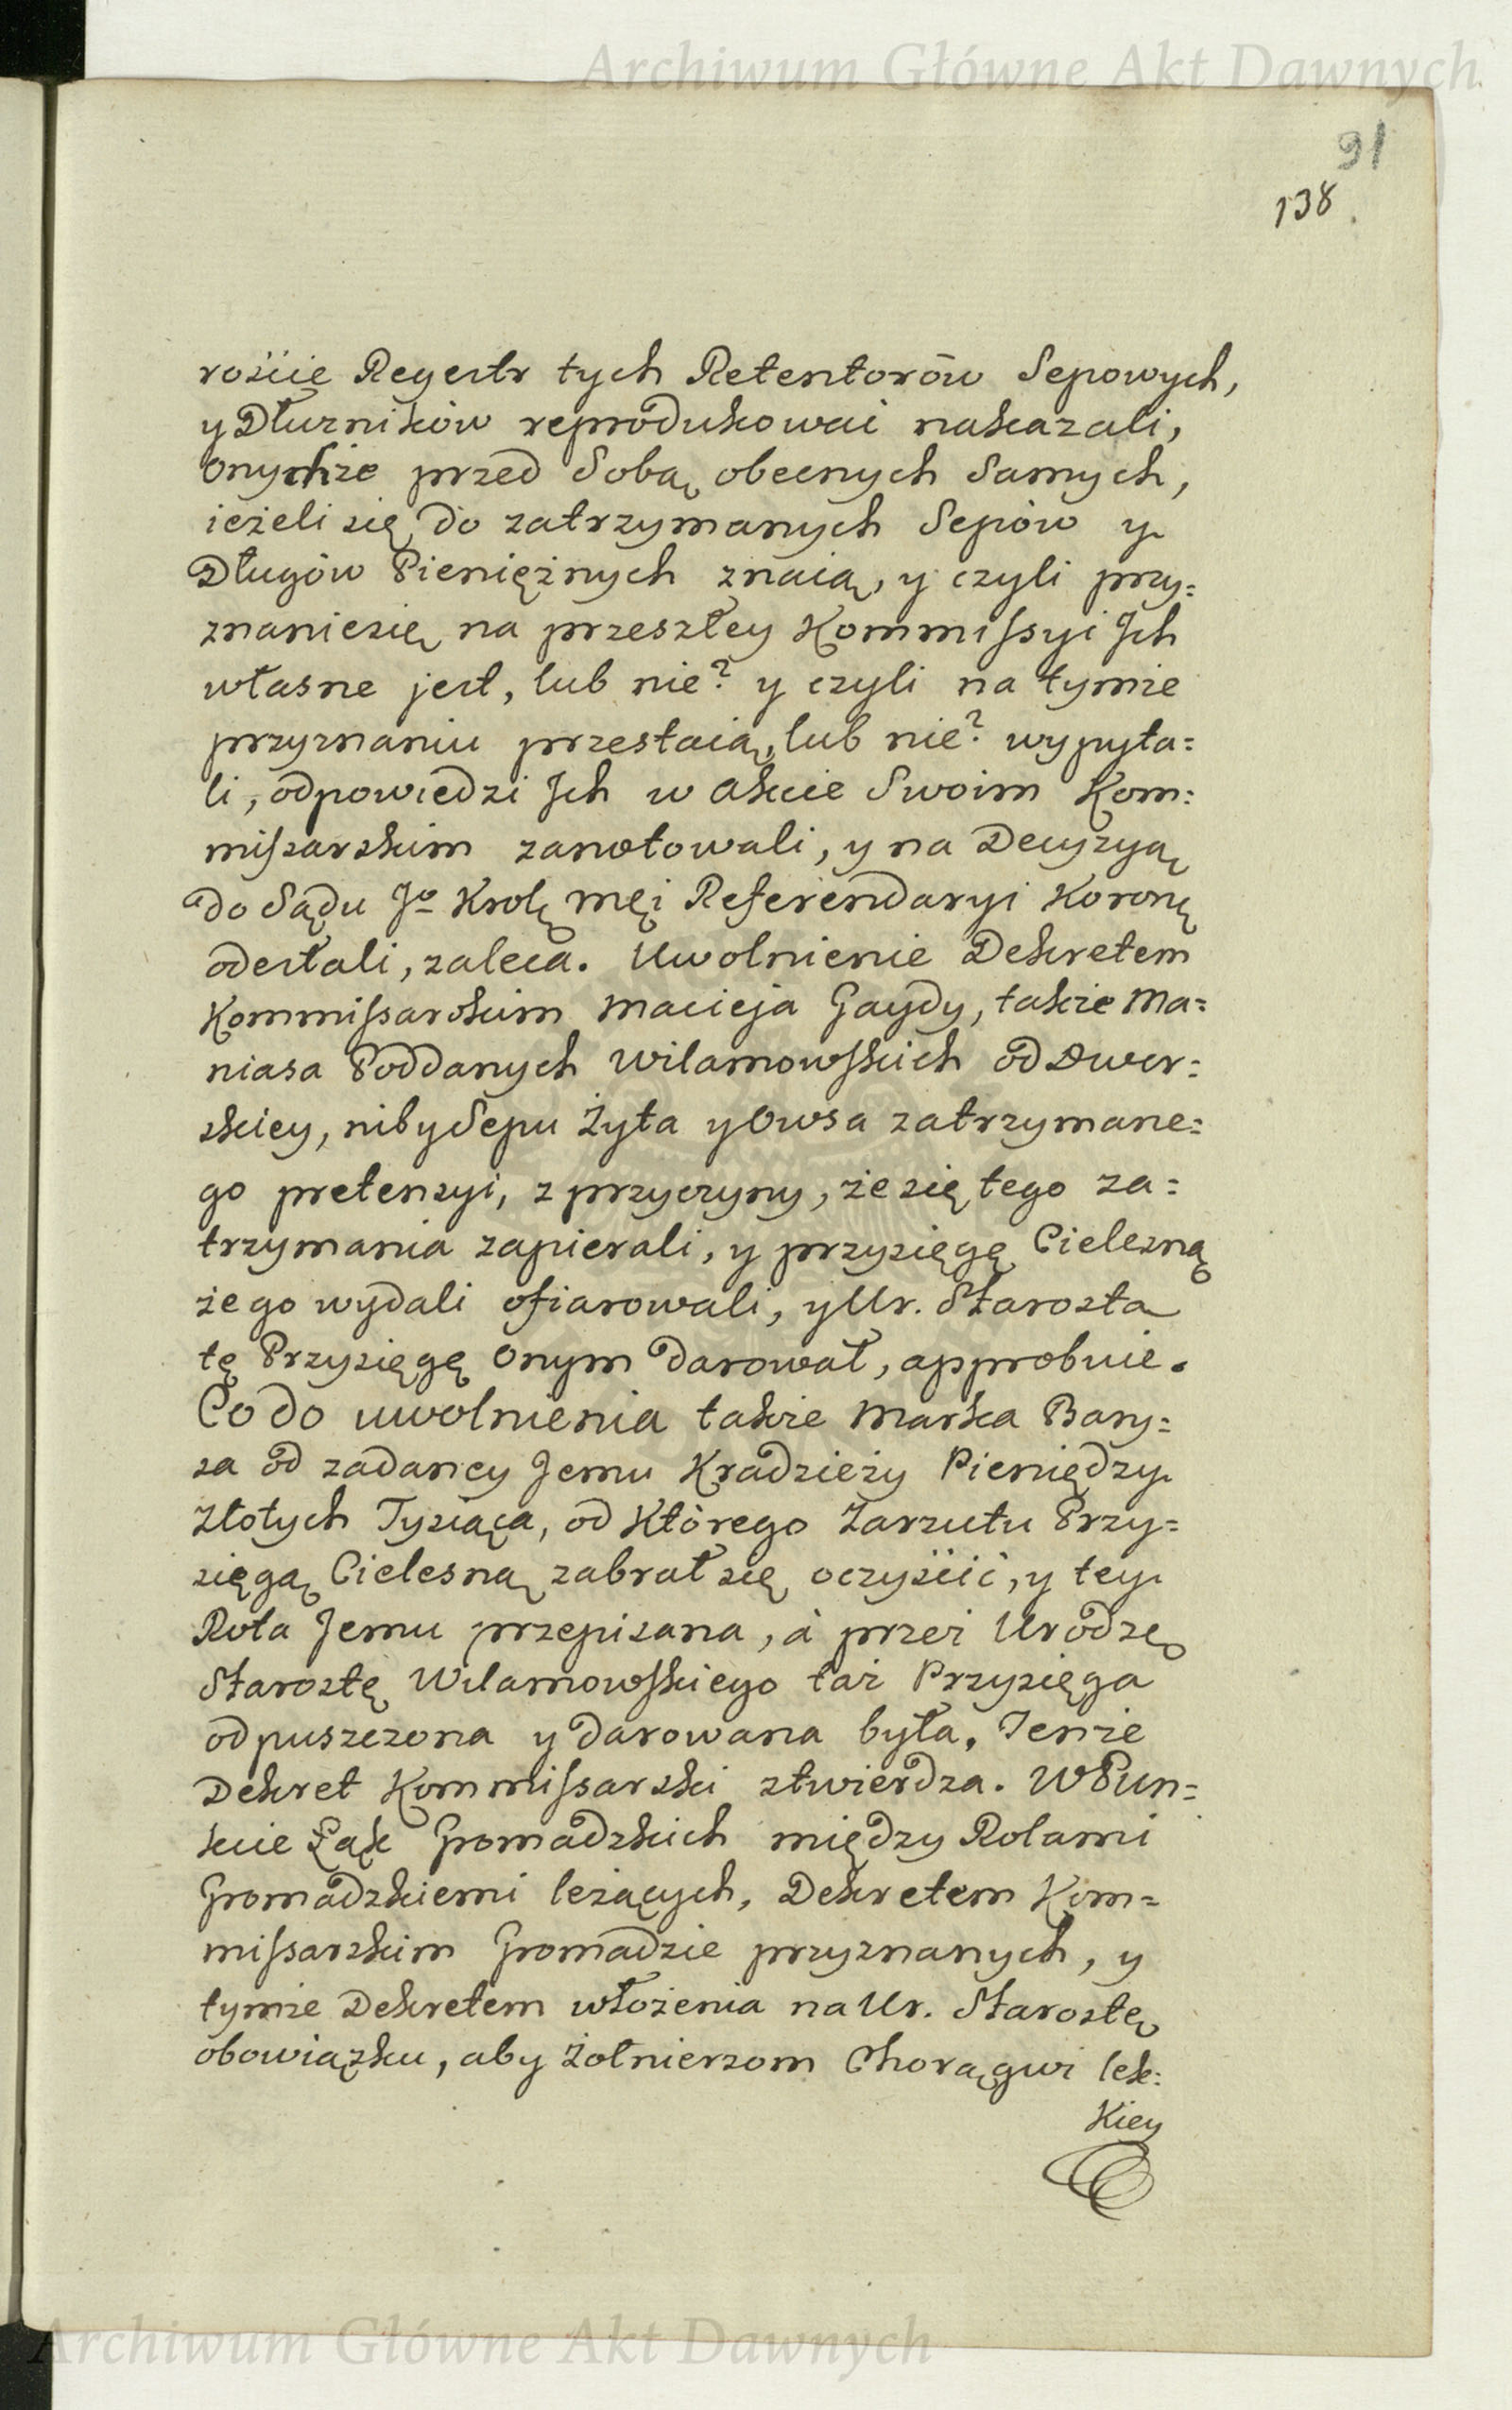 Archiwum Główne Akt Dawnych
91
138.
roście Regestr tych Retentorów Sepowych,
y Dłużników reprodukować nakazali,
onychże przed Sobą obecnych Samych,
ieżeli się do zatrzymanych Sepów y
Długów Pieniężnych znaią, y czyli przy=
znaniesię na przeszłey Kommissyi Jch
własne jest, lub nie? y czyli na tymże
przyznaniu przestaią, lub nie? wypyta=
li, odpowiedzi Jch w Akcie Swoim Kom=
missarskim zanotowali, y na Decyzyą
do Sądu Jo Krolę Męi Referendaryi Koronę
odesłali, zaleca. Uwolnienie Dekretem
Kommissarskim Macieja Gaydy, także Ma=
niasa Poddanych Wilamowskich od Dwor=
skiey, niby Sepu Żyta y Owsa zatrzymane=
go pretensyi, z przyczyny, że się tego za=
trzymania zapierali, y przysięgę Cielesną
że go wydali ofiarowali, y Ur. Starosta
tę Przysięgę onym darował, approbuie.
Co do uwolnienia także Marka Bary=
sa od zadaney Jemu Kradzieży Pieniędzy
Złotych Tysiąca, od Którego Zarzutu Przy=
sięgą Cielesną zabrał się oczyścić, y tey
Rota Jemu przepisana, à przez Urodzę
Starostę Wilamowskiego taż Przysięga
odpuszczona y darowana była, Tenże
Dekret Kommissarski stwierdza. W Pun=
kcie Łąk Gromadzkich między Rolami
Gromadzkiemi leżących, Dekretem Kom=
missarskim Gromadzie przyznanych, y
tymże Dekretem włożenia na Ur. Starostę
obowiązku, aby Żołnierzom Chorągwi lek=
Kiey
Archiwum Główne Akt Dawnych